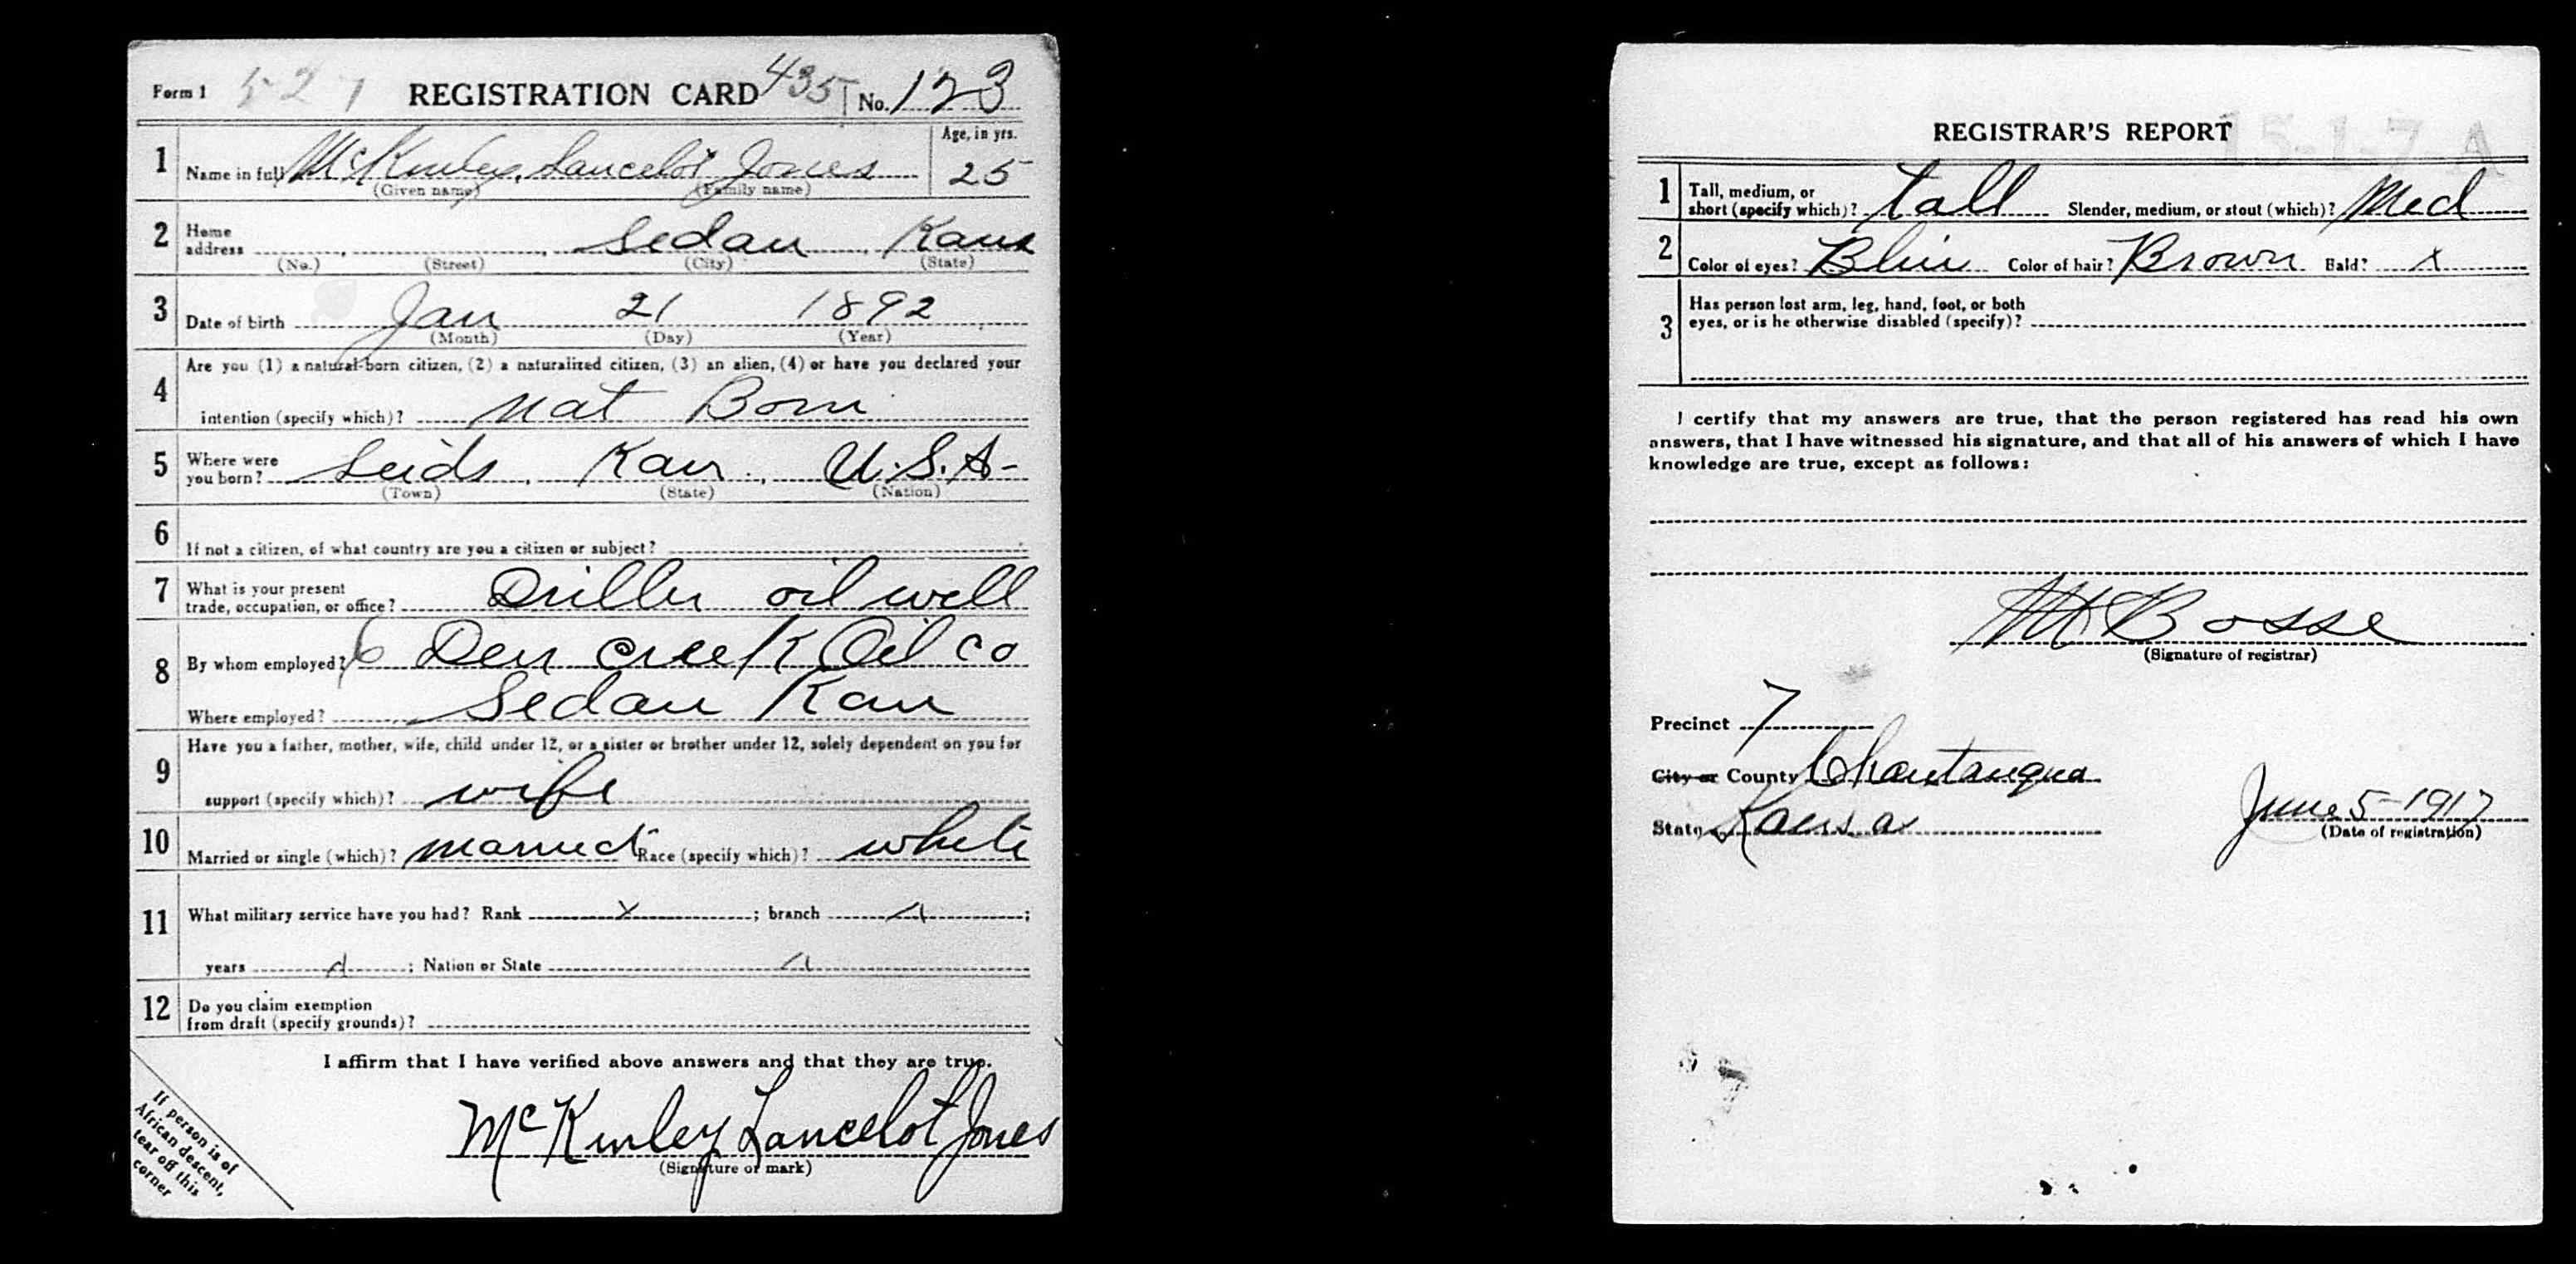 Form 1 527 REGISTRATION CARD 435 No. 123
1 Name in full McKinley Lancelot Jones Age, in yrs. 25
(Given name) (Family name)
2 Home address Sedan, Kans
(No.) (Street) (City) (State)
3 Date of birth Jan 21 1892
(Month) (Day) (Year)
4 Are you (1) a natural-born citizen, (2) a naturalized citizen, (3) an alien, (4) or have you declared your
intention (specify which)? Nat Born
5 Where were you born? Leids, Kan, U.S.A-
(Town) (State) (Nation)
6 If not a citizen, of what country are you a citizen or subject?
7 What is your present
trade, occupation, or office? Driller oil well
8 By whom employed? Creek Oil Co
Where employed? Sedan Kan
9 Have you a father, mother, wife, child under 12, or a sister or brother under 12, solely dependent on you for
support (specify which)? wife
10 Married or single (which)? married Race (specify which)? white
11 What military service have you had? Rank x; branch x;
years x; Nation or State x
12 Do you claim exemption
from draft (specify grounds)?
I affirm that I have verified above answers and that they are true.
McKinley Lancelot Jones
(Signature or mark)
If person is of
African descent,
tear off this
corner
REGISTRAR'S REPORT
15-1-7-A
1 Tall, medium, or
short (specify which)? tall Slender, medium, or stout (which)? Med
2 Color of eyes? Blue Color of hair? Brown Bald? x
3 Has person lost arm, leg, hand, foot, or both
eyes, or is he otherwise disabled (specify)?
I certify that my answers are true, that the person registered has read his own
answers, that I have witnessed his signature, and that all of his answers of which I have
knowledge are true, except as follows:
Bosse
(Signature of registrar)
Precinct 7
City or County Chautauqua
State Kansa
June 5-1917
(Date of registration)